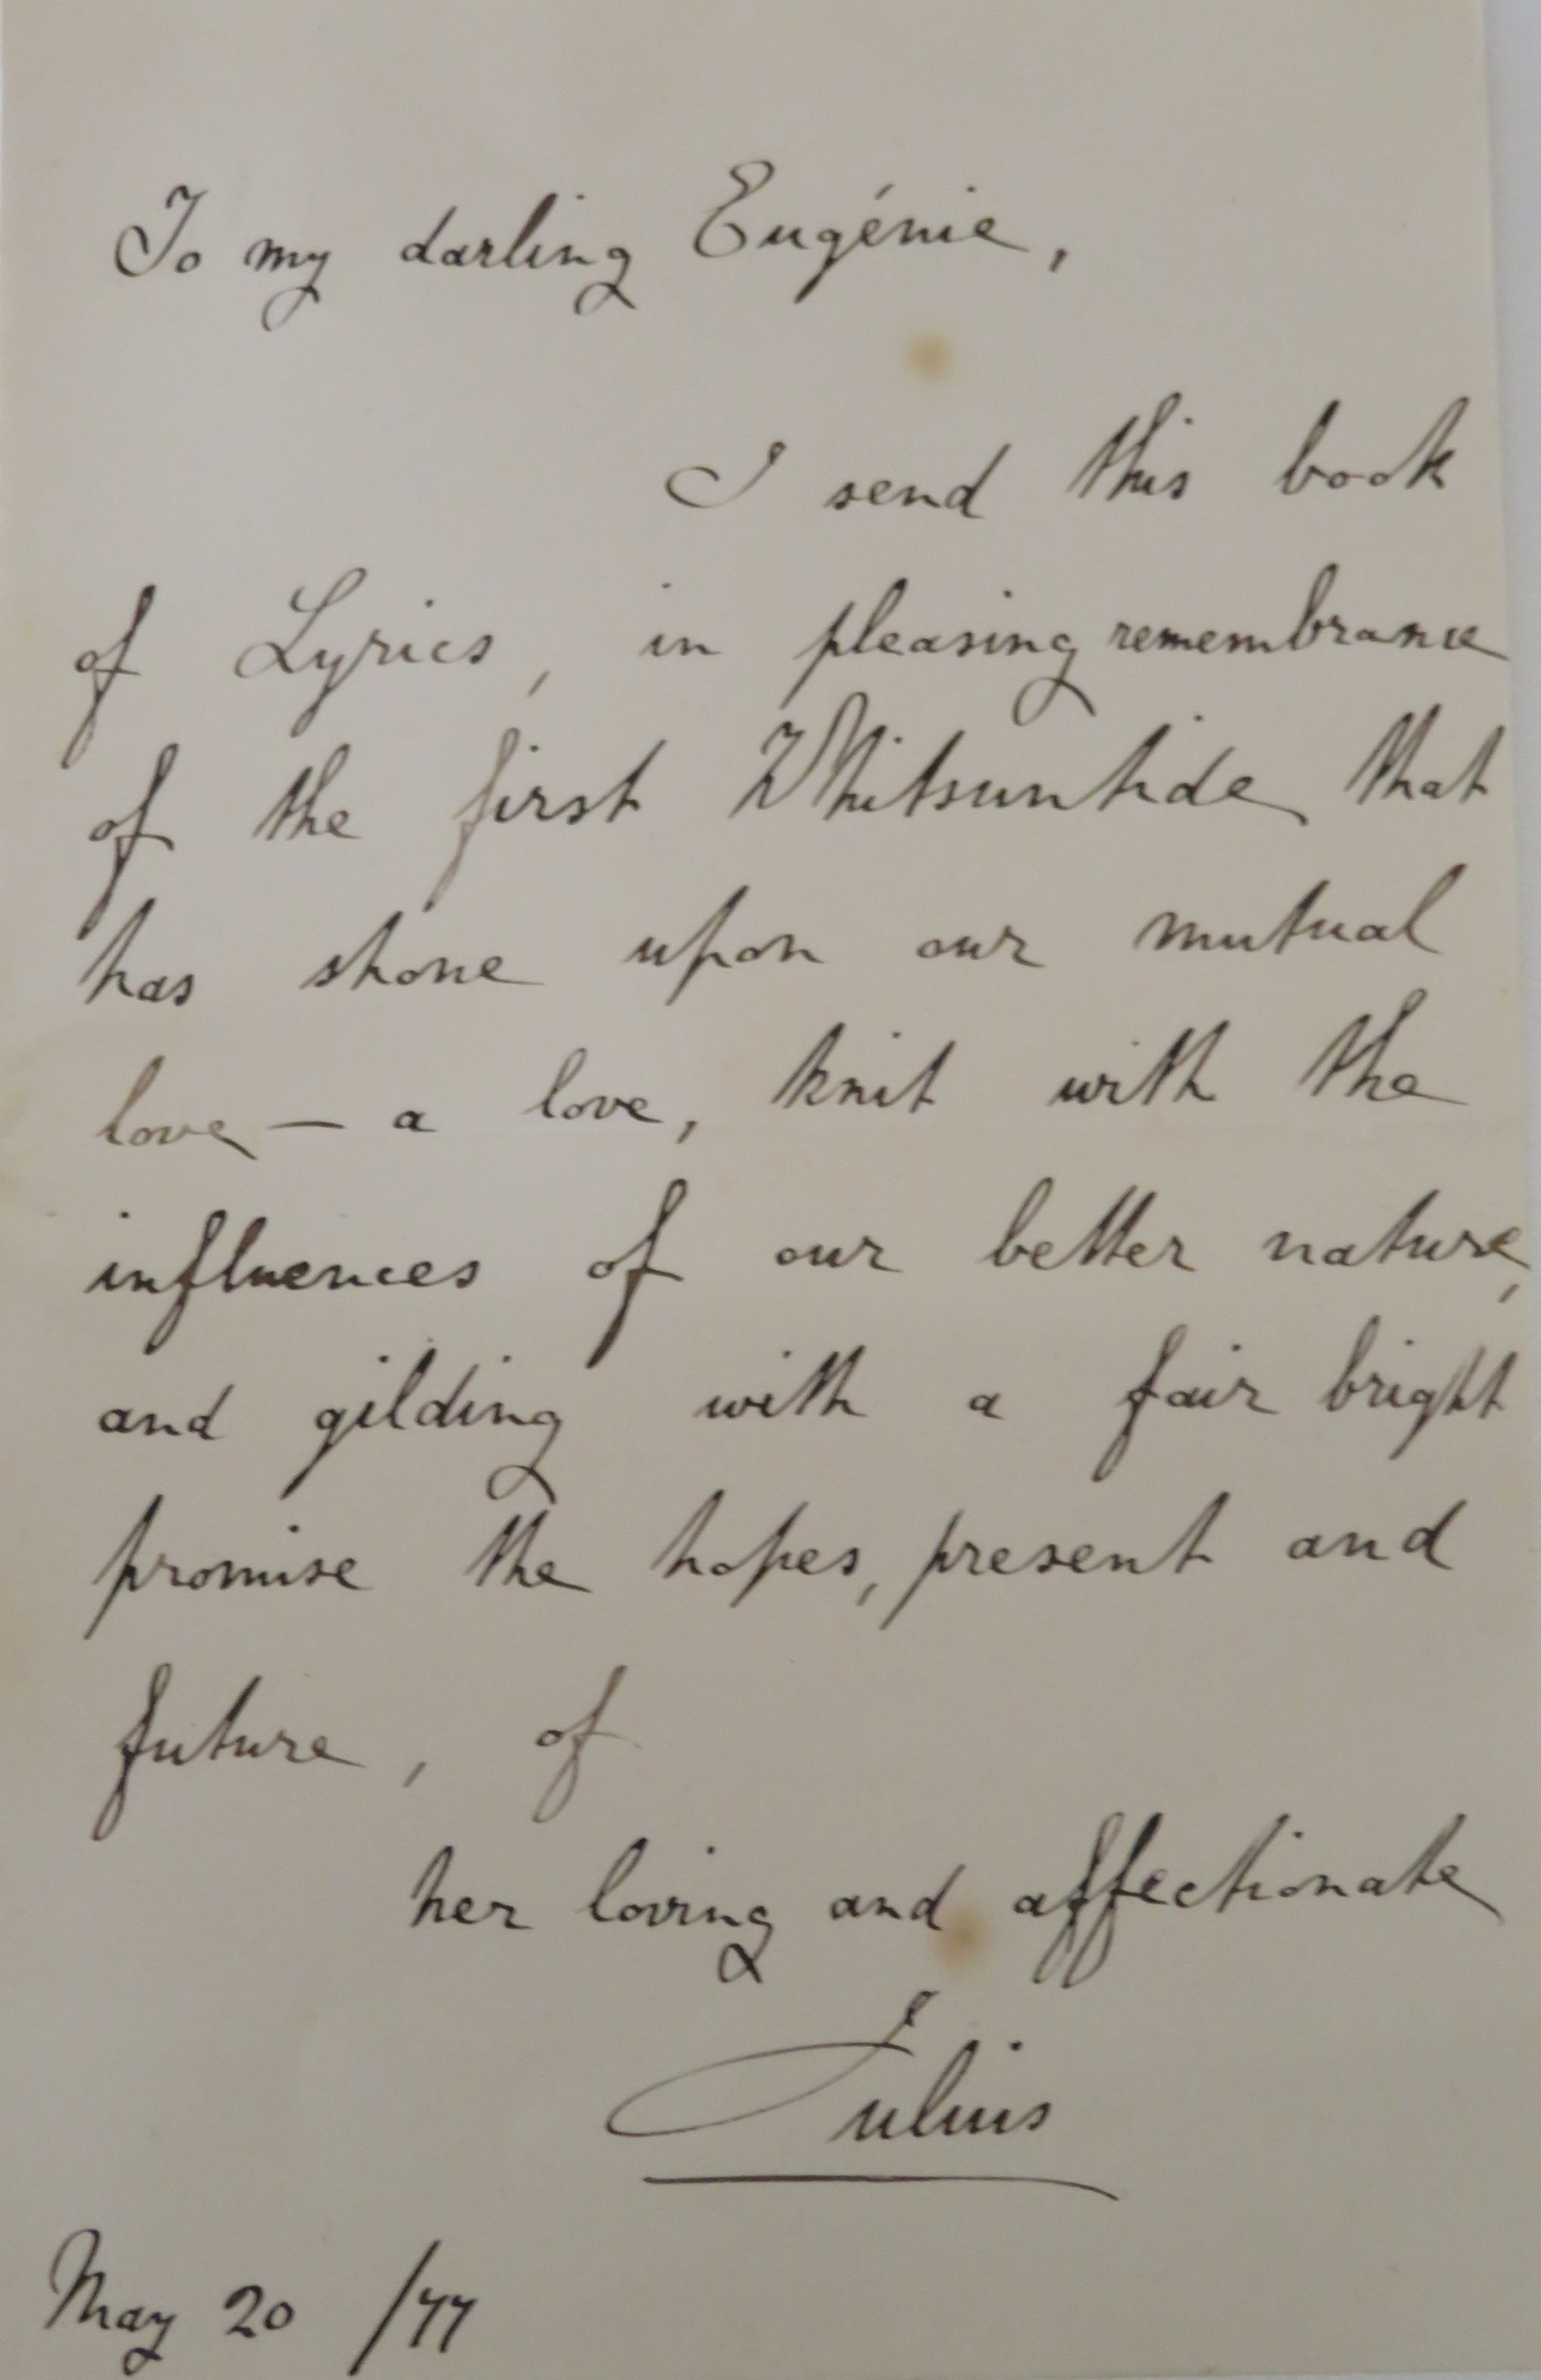 To my darling Eugénie,
I send this book
of Lyrics, in pleasing remembrance
of the first Whitsuntide that
has shone upon our mutual
love — a love, knit with the
influences of our better nature,
and gilding with a fair bright
promise the hopes, present and
future, of
her loving and affectionate
Julius
May 20 /77